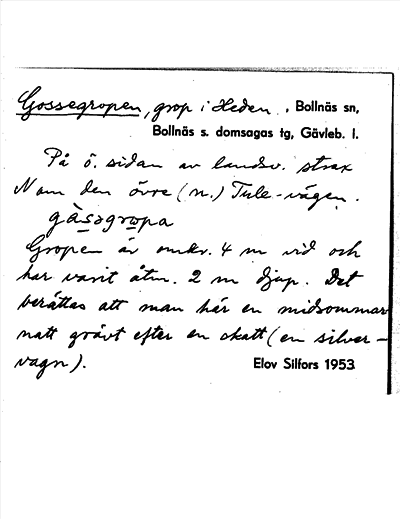 Gossegropen, grop i Heden., Bollnäs sn,
Bollnäs s. domsagas tg, Gävleb. l.
På ö. sidan av landsv. strax
N om den övre (n.) Tule-vägen.
gàsəgropa
Gropen är omkr. 4 m vid och
har varit åtm. 2 m djup. Det
berättas att man här en midsommar
natt grävt efter en skatt (en silver-
vagn).
Elov Silfors 1953